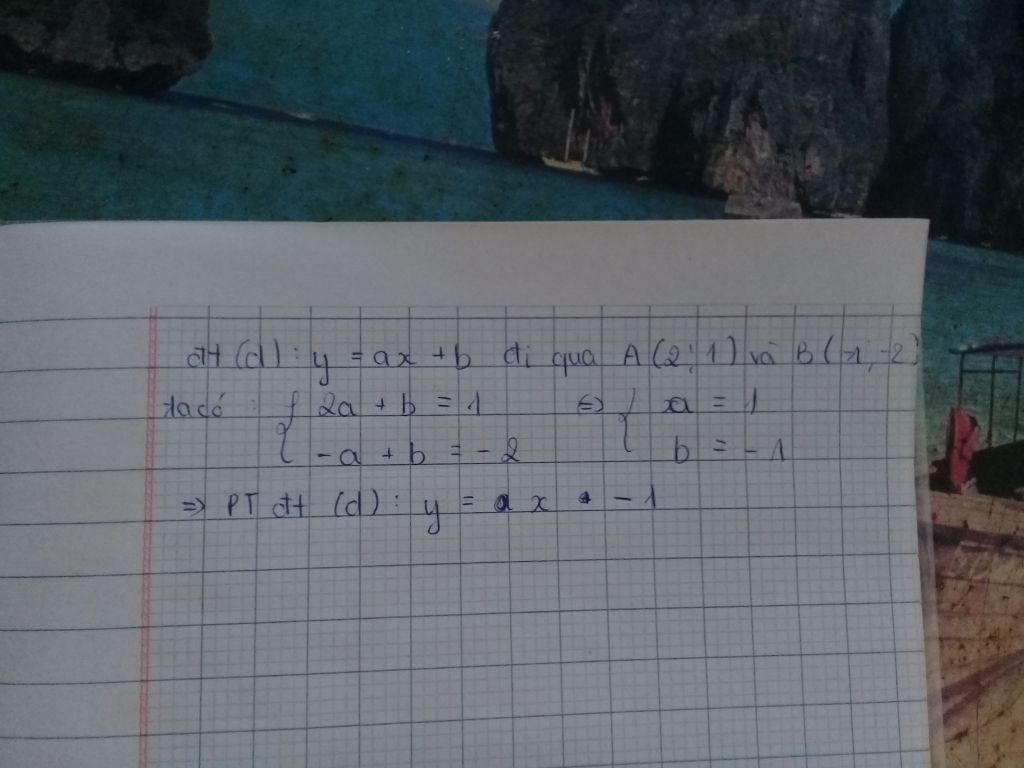 đt (d) : y = ax + b đi qua A (2 ; 1) và B (-1 ; -2)
ta có : { 2a + b = 1 ⇔ { a = 1
-a + b = -2 b = -1
⇒ PT đt (d) : y = x - 1